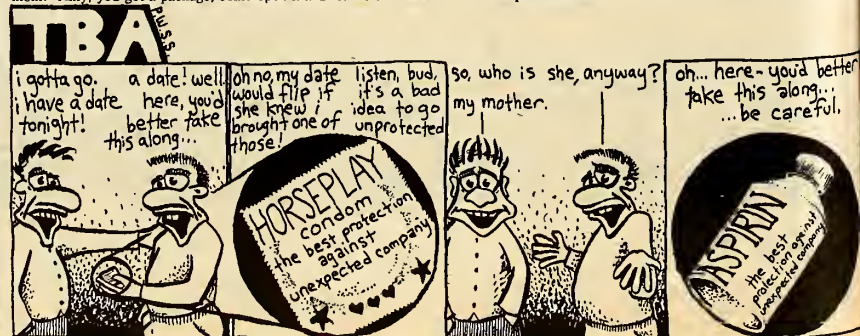 TBA
P.W.S.S.
i gotta go.
i have a date
tonight!
a date! well
here, you'd
better take
this along...
oh no, my date
would flip if
she knew i
brought one of
those!
listen, bud,
it's a bad
idea to go
unprotected
HORSEPLAY
condom
the best protection
against
unexpected company
so, who is she, anyway?
my mother.
oh... here - you'd better
take this along...
...be careful.
ASPIRIN
the best
protection against
unexpected company